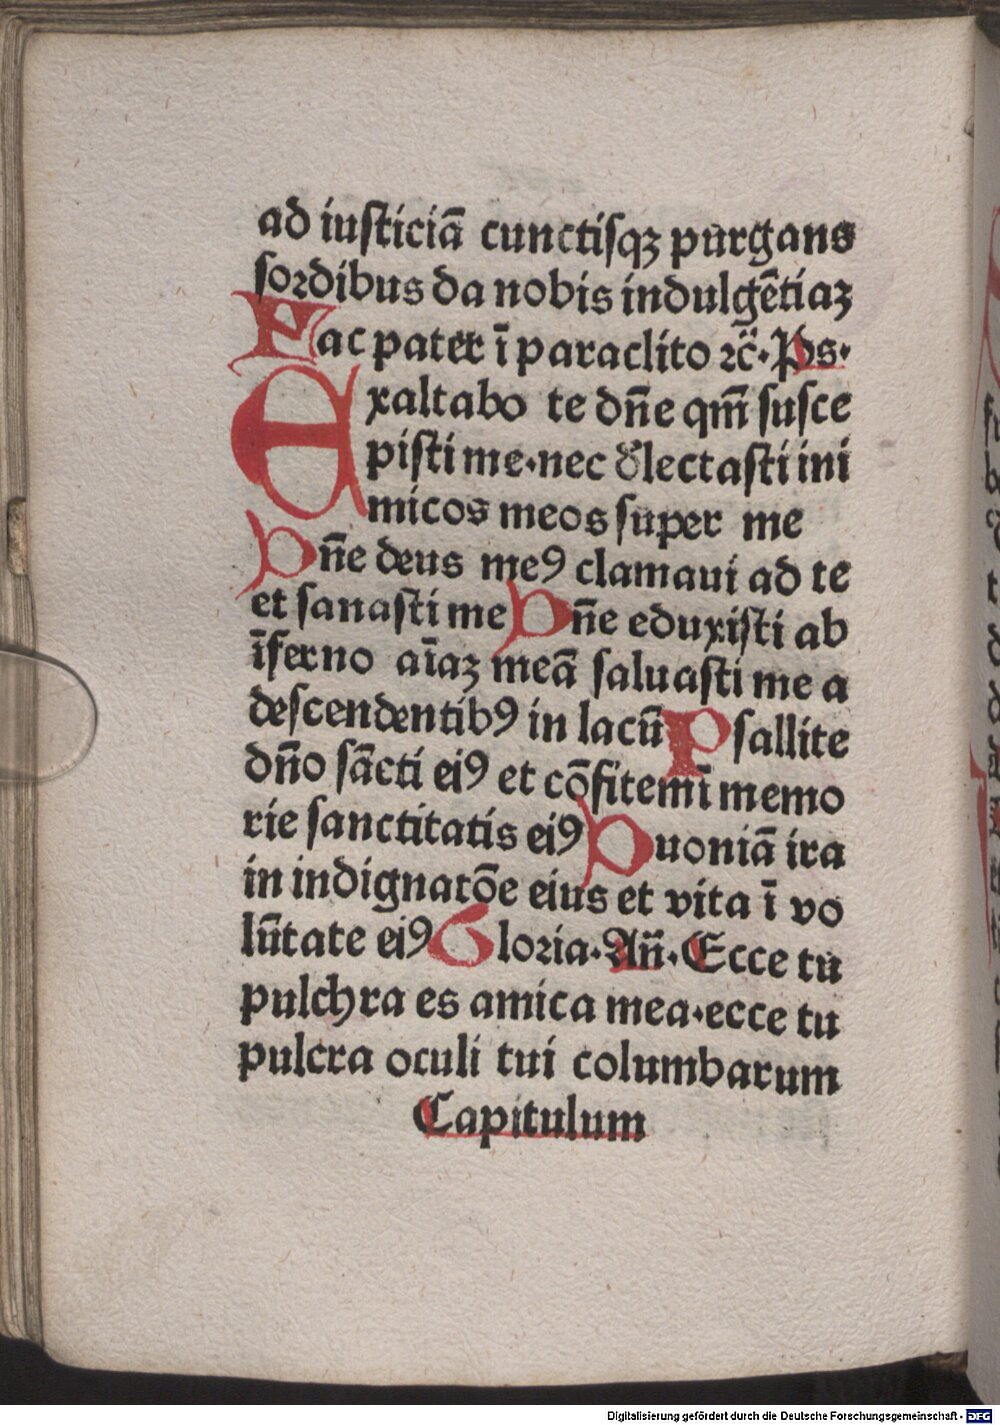 ad iusticiā cunctisqꝫ purgans
sordibus da nobis indulgētiaꝫ
Fac pater ī paraclito ⁊c̄. Ps.
Exaltabo te dn̄e qm̄ susce
pisti me.nec d̾lectasti ini
micos meos super me
Dn̄e deus meꝰ clamaui ad te
et sanasti me Dn̄e eduxisti ab
īferno aīaꝫ meā saluasti me a
descendentibꝰ in lacū Psallite
dn̄o sācti eiꝰ et cōfitemī memo
rie sanctitatis eiꝰ Quoniā ira
in indignatōe eius et vita ī vo
lūtate eiꝰ Gloria. An̄. Ecce tu
pulchra es amica mea.ecce tu
pulcra oculi tui columbarum
Capitulum
Digitalisierung gefördert durch die Deutsche Forschungsgemeinschaft - DFG